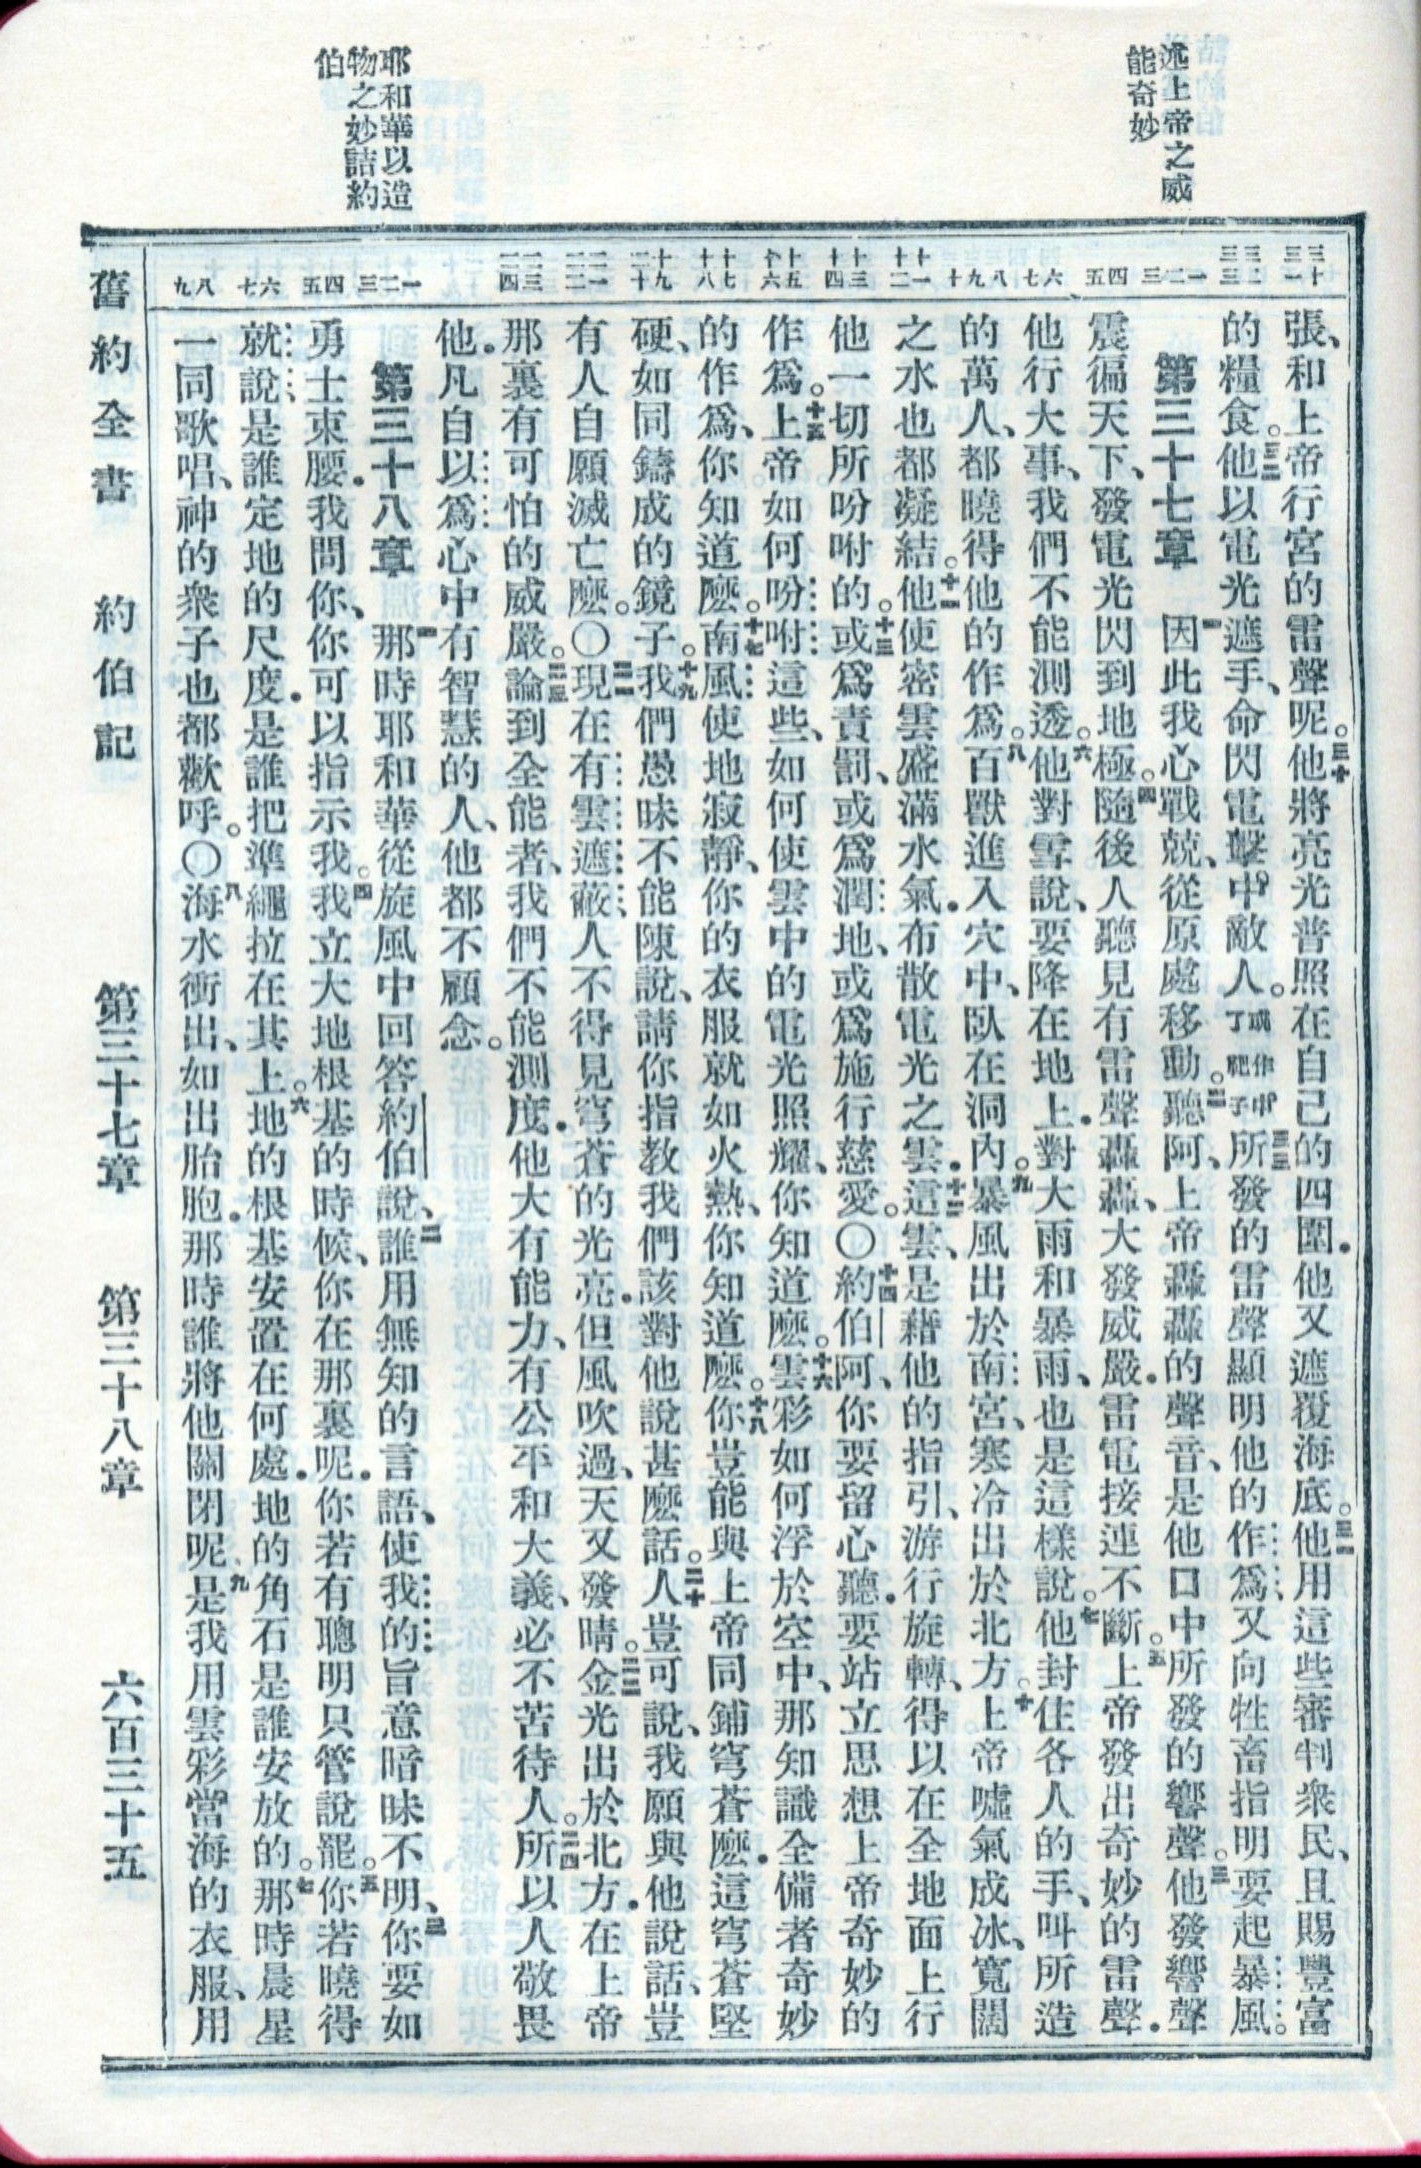 述上帝之威
能奇妙
耶和華以造
物之妙詰約
伯
三十 三一
三二 三三
一 二 三
四 五
六 七
八 九 十
十一 十二
十三 十四
十五 十六
十七 十八
十九 二十
二一 二二
二三 二四
一 二 三
四 五
六 七
八 九
張、和上帝行宮的雷聲呢。三十他將亮光普照在自己的四圍．他又遮覆海底。三一他用這些審判衆民、且賜豐富
的糧食。三二他以電光遮手、命閃電擊中敵人。或作中了靶子三三所發的雷聲顯明他的作爲、又向牲畜指明要起暴風。
第三十七章 一因此我心戰兢、從原處移動。二聽阿、上帝轟轟的聲音、是他口中所發的響聲。三他發響聲
震徧天下、發電光閃到地極。四隨後人聽見有雷聲轟轟、大發威嚴．雷電接連不斷。五上帝發出奇妙的雷聲．
他行大事、我們不能測透。六他對雪說、要降在地上．對大雨和暴雨、也是這樣說。七他封住各人的手、叫所造
的萬人、都曉得他的作爲。八百獸進入穴中、臥在洞內。九暴風出於南宮、寒冷出於北方。十上帝噓氣成冰、寬闊
之水也都凝結。十一他使密雲盛滿水氣．布散電光之雲．十二這雲、是藉他的指引、游行旋轉、得以在全地面上行
他一切所吩咐的。十三或爲責罰、或爲潤地、或爲施行慈愛。〇十四約伯阿、你要留心聽．要站立思想上帝奇妙的
作爲。十五上帝如何吩咐這些、如何使雲中的電光照耀、你知道麼。十六雲彩如何浮於空中、那知識全備者奇妙
的作爲、你知道麼。十七南風使地寂靜、你的衣服就如火熱、你知道麼。十八你豈能與上帝同鋪穹蒼麼．這穹蒼堅
硬、如同鑄成的鏡子。十九我們愚昧不能陳說、請你指教我們該對他說甚麼話。二十人豈可說、我願與他說話、豈
有人自願滅亡麼。〇二一現在有雲遮蔽、人不得見穹蒼的光亮．但風吹過、天又發晴。二二金光出於北方．在上帝
那裏有可怕的威嚴。二三論到全能者、我們不能測度．他大有能力、有公平和大義、必不苦待人。二四所以人敬畏
他．凡自以爲心中有智慧的人、他都不顧念。
第三十八章 一那時耶和華從旋風中回答約伯說、二誰用無知的言語、使我的旨意暗昧不明、三你要如
勇士束腰．我問你、你可以指示我。四我立大地根基的時候、你在那裏呢．你若有聰明只管說罷。五你若曉得
就說是誰定地的尺度．是誰把準繩拉在其上。六地的根基安置在何處．地的角石是誰安放的。七那時晨星
一同歌唱、神的衆子也都歡呼。〇八海水衝出、如出胎胞．那時誰將他關閉呢、九是我用雲彩當海的衣服、用
舊約全書 約伯記 第三十七章 第三十八章 六百三十五